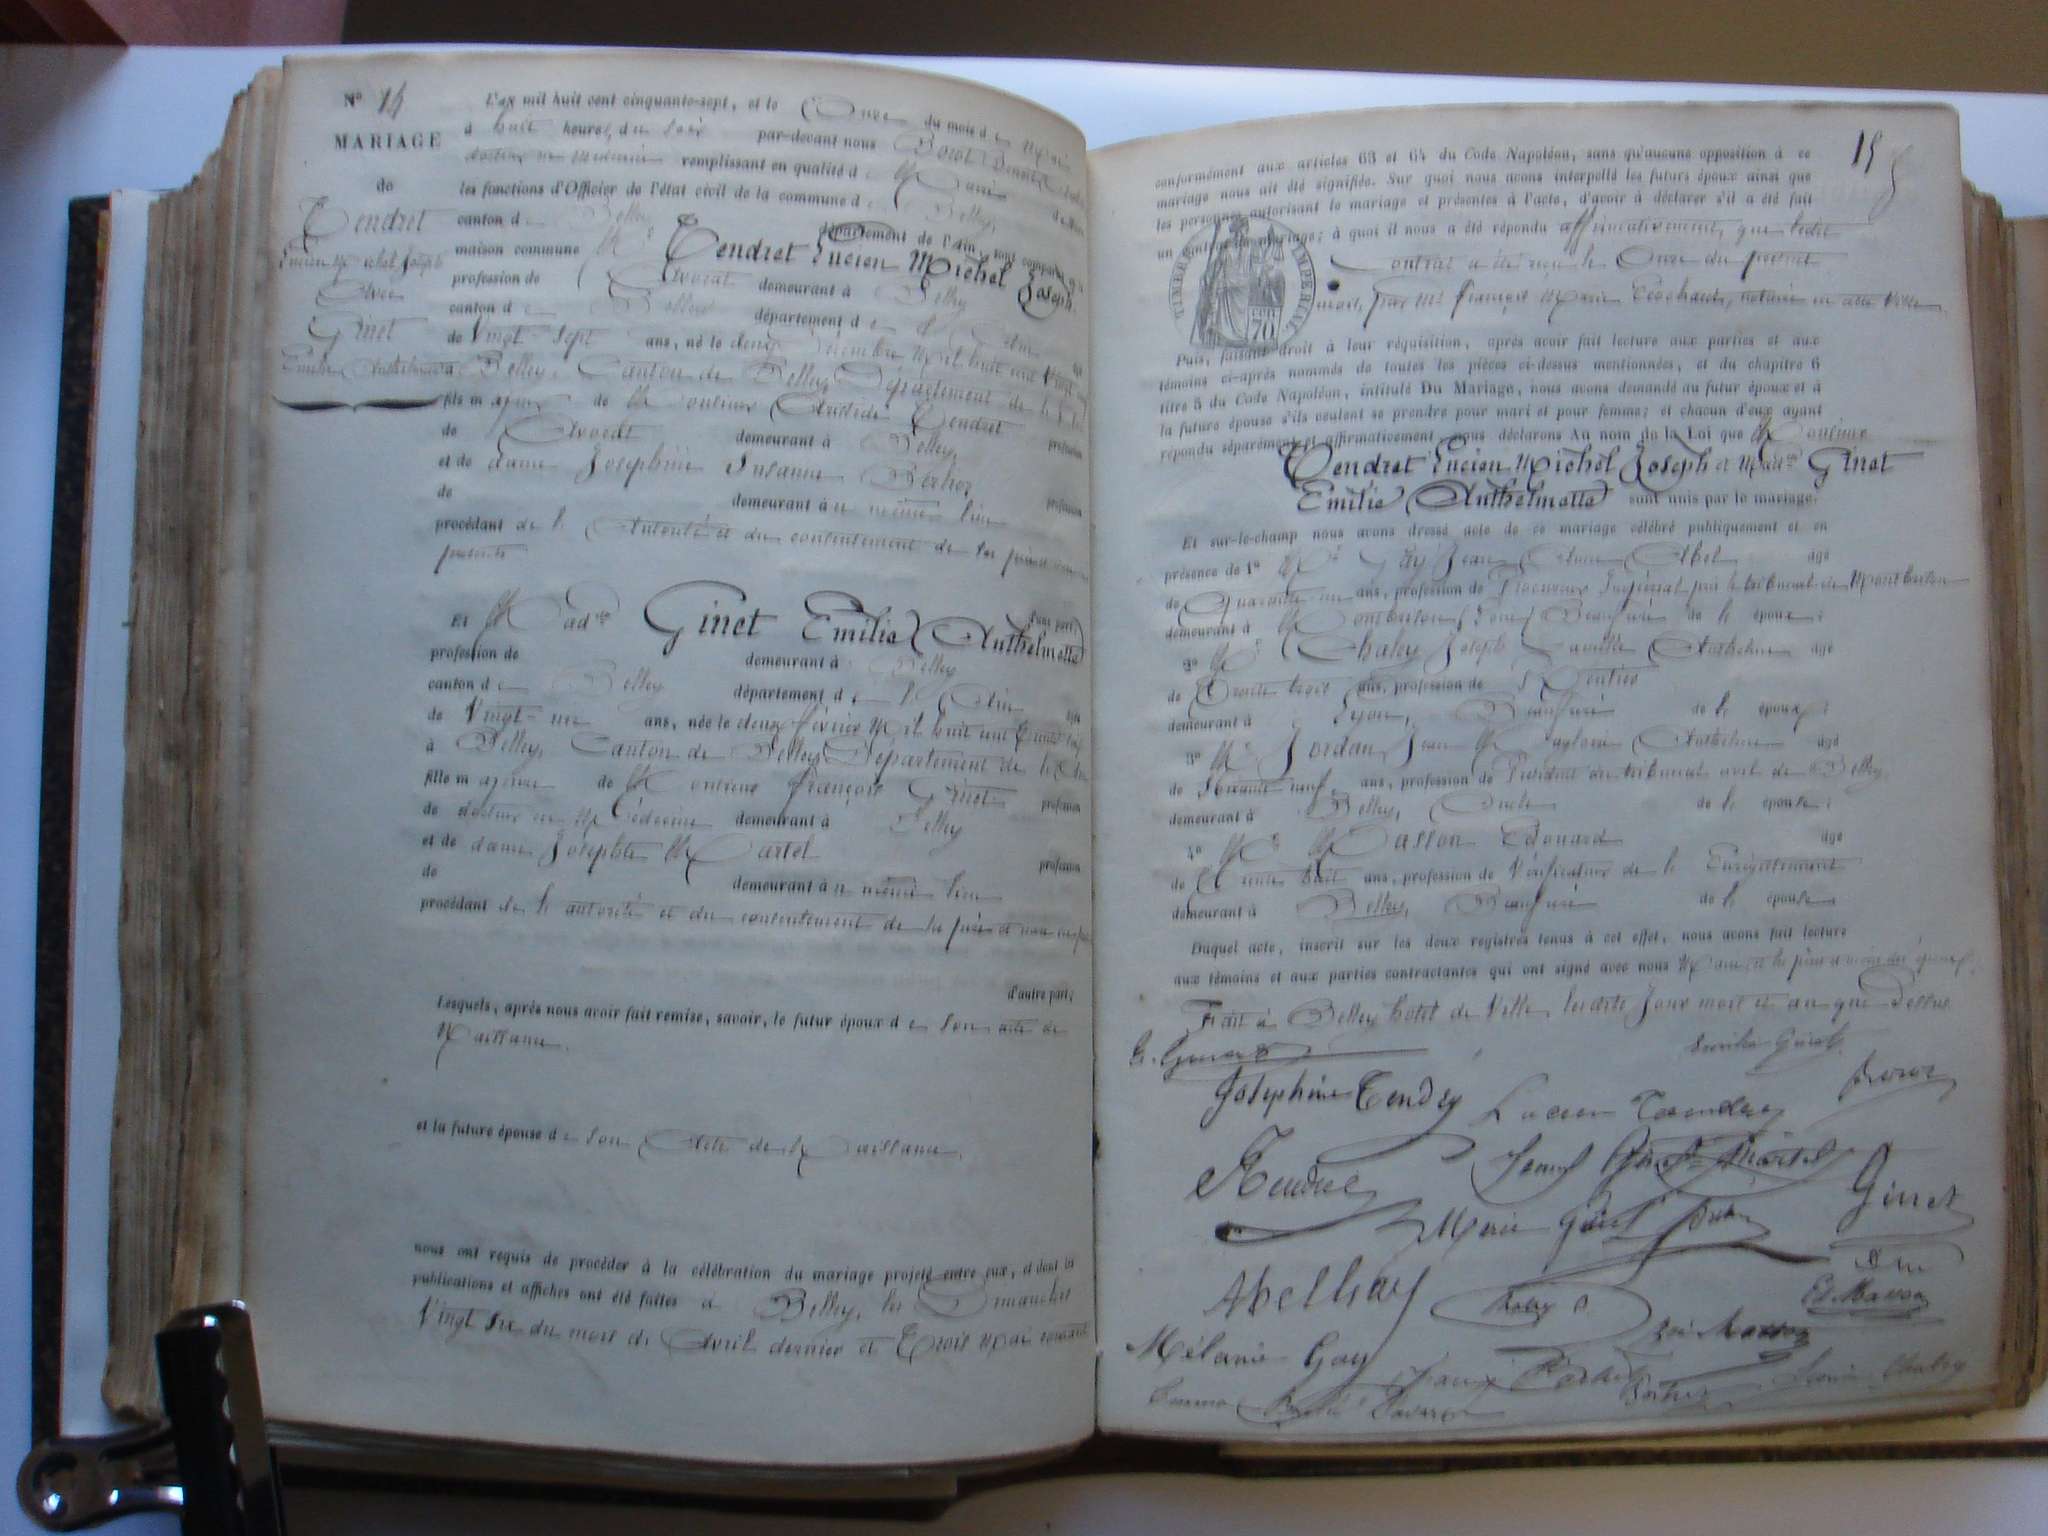 N° 14
MARIAGE
de
Tendret
Lucien Michel Joseph
Avec
Ginet
Emilie Anthelmette
L'an mil huit cent cinquante-sept, et le Onze du mois de Mai
à huit heures, du soir par-devant nous Borot Benoit
docteur en Médecine remplissant en qualité de Maire
les fonctions d'Officier de l'état civil de la commune de Belley,
canton de Belley département de l'Ain, sont comparus
maison commune Mr Tendret Lucien Michel Joseph
profession de Avocat demeurant à Belley
canton de Belley département de l'Ain
de Vingt-sept ans, né le
à Belley, Canton de Belley Département de l'Ain
fils majeur de Monsieur Aristide Tendret profession
de Avocat demeurant à Belley,
et de dame Joséphine Suzanne profession
de demeurant à u même lieu
procédant de l'Autorité et du consentement de ses père et mère
présents
d'une part;
Et Madlle Ginet Emilie Anthelmette
profession de demeurant à Belley
canton de Belley département de l'Ain âgée
de Vingt-un ans, née le deux février Mil huit cent trente six
à Belley, Canton de Belley Département de l'Ain
fille majeure de Monsieur François Ginet profession
de docteur en Médecine demeurant à Belley
et de dame Josephte Martel profession
de demeurant à u même lieu
procédant de l'autorité et du consentement de ses père et mère
d'autre part;
Lesquels, après nous avoir fait remise, savoir, le futur époux de son acte de
Naissance.
et la future épouse de son Acte de Naissance.
nous ont requis de procéder à la célébration du mariage projeté entre eux, et dont les
publications et affiches ont été faites à Belley, les Dimanches
Vingt six du mois de Avril dernier et Trois Mai courant
15
conformément aux articles 63 et 64 du Code Napoléon, sans qu'aucune opposition à ce
mariage nous ait été signifiée. Sur quoi nous avons interpellé les futurs époux ainsi que
les personnes autorisant le mariage et présentes à l'acte, d'avoir à déclarer s'il a été fait
un contrat de mariage; à quoi il nous a été répondu affirmativement, que ledit
Contrat a été reçu le Onze du présent
mois, par Me François Marie notaire en cette Ville
TIMBRE IMPERIAL
CEN 70
Puis, faisant droit à leur réquisition, après avoir fait lecture aux parties et aux
témoins ci-après nommés de toutes les pièces ci-dessus mentionnées, et du chapitre 6
titre 5 du Code Napoléon, intitulé Du Mariage, nous avons demandé au futur époux et à
la future épouse s'ils veulent se prendre pour mari et pour femme; et chacun d'eux ayant
répondu séparément et affirmativement, nous déclarons Au nom de la Loi que Monsieur
Tendret Lucien Michel Joseph et Madlle Ginet
Emilie Anthelmette sont unis par le mariage.
Et sur-le-champ nous avons dressé acte de ce mariage célébré publiquement et en
présence de 1° Mr Gay Jean Abel âgé
de Quarante-un ans, profession de Procureur Impérial près le tribunal de Montbrison
demeurant à Montbrison Beaufrère de l' époux;
2° Mr Chaley Joseph Camille Anthelme âgé
de Trente trois ans, profession de Rentier
demeurant à Lyon, Beaufrère de l' époux;
3° Mr Jordan Jean Anthelme âgé
de Soixante neuf ans, profession de Président du tribunal civil de Belley
demeurant à Belley, Oncle de l' épouse;
4° Mr Masson Edouard âgé
de Trente huit ans, profession de Vérificateur de l'Enregistrement
demeurant à Belley, Beaufrère de l' épouse
Duquel acte, inscrit sur les deux registres tenus à cet effet, nous avons fait lecture
aux témoins et aux parties contractantes qui ont signé avec nous Maire
Fait à Belley hotel de Ville, lesdits Jour mois et an que Dessus
Emilie Ginet
Borot
Joséphine Tendret Lucien Tendret
ATendret Ginet Martel Ginet
Marie Ginet
Abel Gay Chaley Ed Masson
Zoé Masson
Mélanie Gay
Chaley